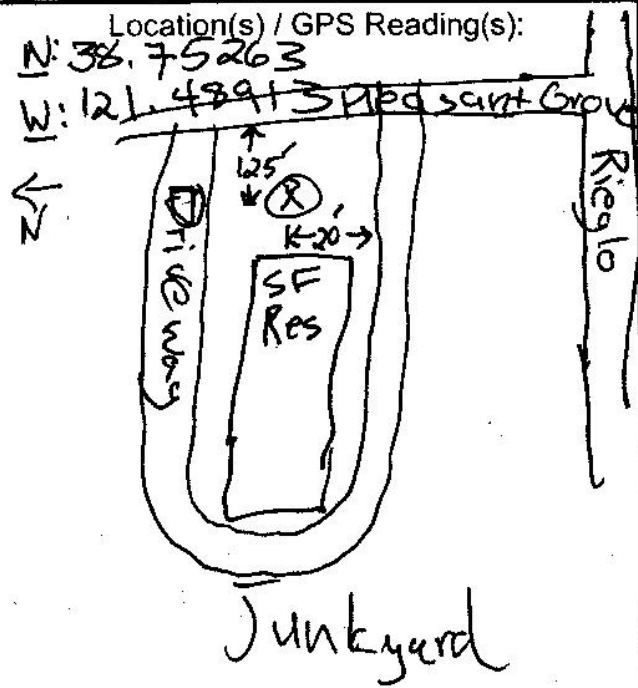 Location(s) / GPS Reading(s):
N: 38.75263
W: 121.48913 Pleasant Grove
125'
N
X
20'
Rieglo
Driveway
SF
Res
Junkyard